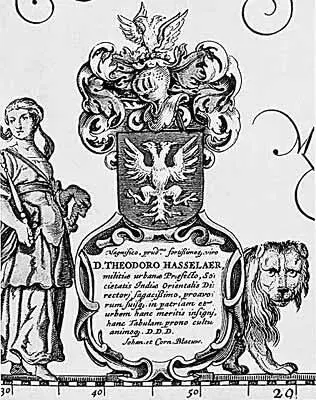 Magnifico, prudmo fortissimoq, viro
D. THEODORO HASSELAER,
militiæ urbanæ Præfecto, So-
cietatis Indiæ Orientalis Di-
rectori sagacissimo, proavo-
rum suisq. in patriam et
urbem hanc meritis insigni,
hanc Tabulam prono cultu
animoq. D.D.D.
Iohan. et Corn. Blaeuw.
M
30 40 50 29